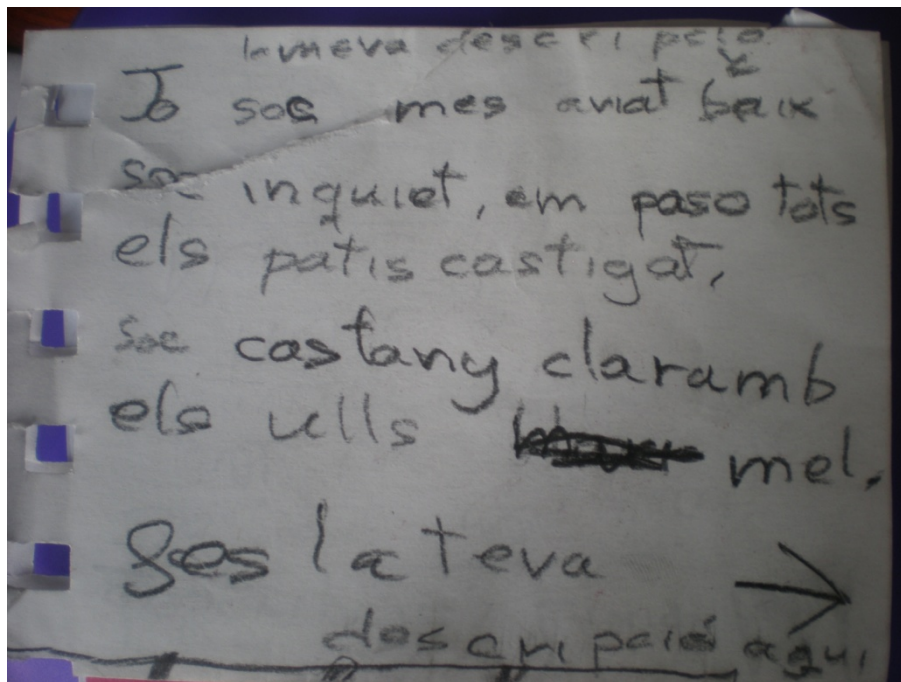 la meva descripció
Jo soc mes aviat baix
soc inquiet, em paso tots
els patis castigat,
soc castany claramb
els ulls mel.
Fes la teva
descripció aqui